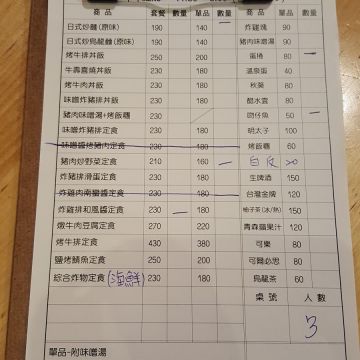 商品 套餐 數量 單品 數量 商品 單品 數量
日式炒麵(原味) 190 140 炸雞塊 90
日式炒烏龍麵(原味) 190 140 豬肉味噌湯 90
烤牛排丼飯 250 200 蛋捲 80
牛壽喜燒丼飯 230 180 溫泉蛋 40
烤牛肉丼飯 230 180 秋葵 80
味噌炸豬排丼飯 230 180 醋水雲 80
豬肉味噌湯+烤飯糰 230 吻仔魚 50
味噌炸豬排定食 230 180 明太子 100
味噌醬烤豬肉定食 230 180 烤飯糰 60
豬肉炒野菜定食 210 160 白飯 20
炸豬排滑蛋定食 230 180 生啤酒 150
炸雞肉南蠻定食 230 180 台灣金牌 120
炸雞排和風醬定食 230 180 柚子茶(冰/熱) 150
燉牛肉豆腐定食 270 220 青森蘋果汁 120
烤牛排定食 430 380 可樂 80
鹽烤鯖魚定食 250 200 可爾必思 80
綜合炸物定食(海鮮) 230 180 烏龍茶 60
桌號 人數
3
單品-附味噌湯